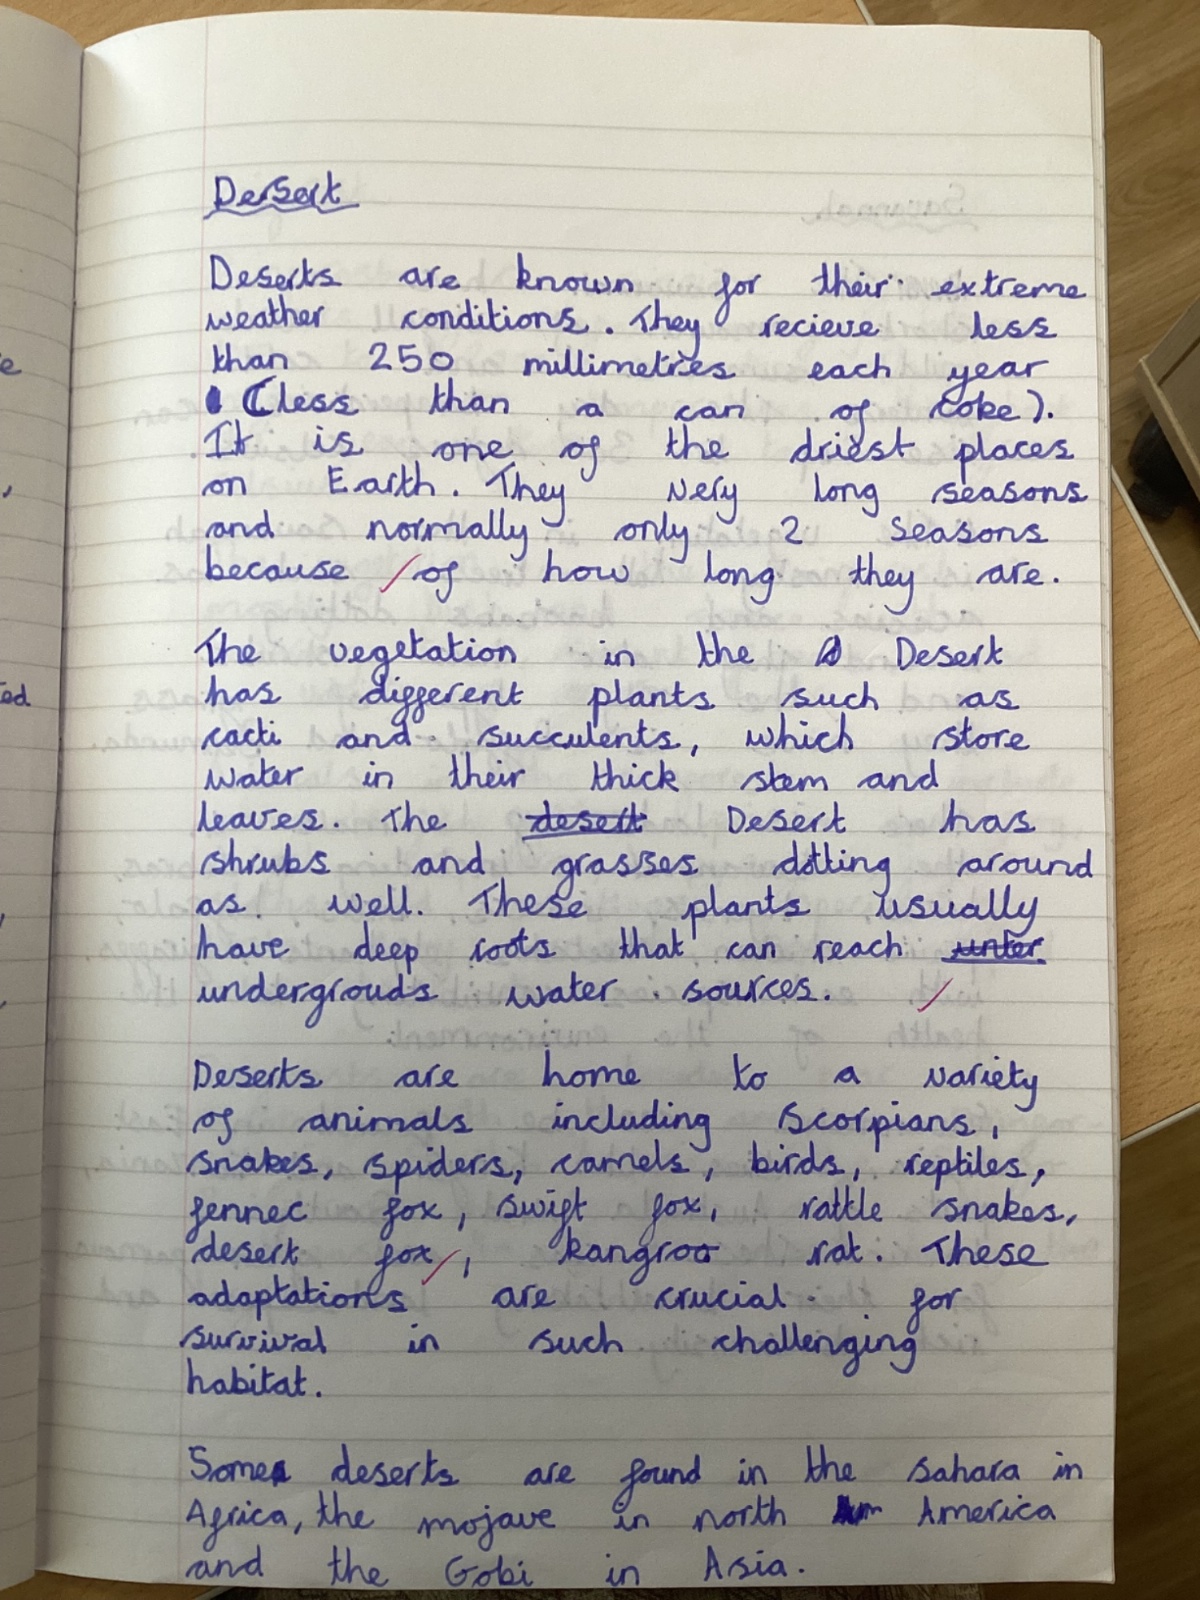 Desert
Deserts are known for their extreme
weather conditions. They recieve less
than 250 millimetres each year
(less than a can of coke).
It is one of the driest places
on Earth. They very long seasons
and normally only 2 seasons
because of how long they are.
The vegetation in the Desert
has different plants such as
cacti and succulents, which store
water in their thick stem and
leaves. The desert Desert has
shrubs and grasses dotting around
as well. These plants usually
have deep roots that can reach unter
undergrouds water sources.
Deserts are home to a variety
of animals including Scorpians,
snakes, spiders, camels, birds, reptiles,
fennec fox, swift fox, rattle snakes,
desert fox, kangroo rat. These
adaptations are crucial for
survival in such challenging
habitat.
Some deserts are found in the sahara in
Africa, the mojave in north America
and the Gobi in Asia.